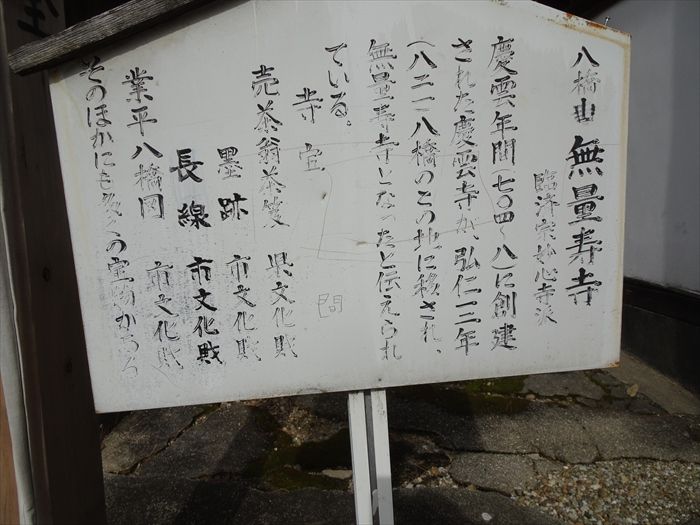 八橋山 無量寿寺
臨済宗妙心寺派
慶雲年間(七〇四〜八)に創建
された慶雲寺が、弘仁一二年
(八二一)八橋のこの地に移され、
無量寿寺となったと伝えられ
ている。
寺宝
売茶翁茶笈 県文化財
墨跡 市文化財
長線 市文化財
業平八橋図 市文化財
そのほかにも多くの宝物がある